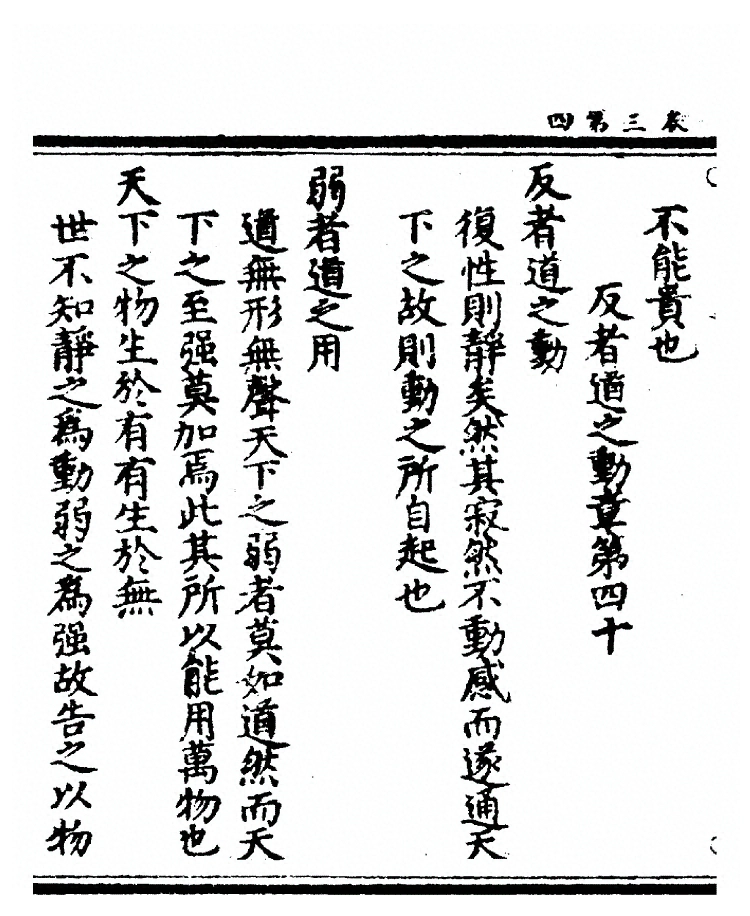 衣三第四
不能貴也
反者道之動章第四十
反者道之動
復性則靜矣然其寂然不動感而遂通天
下之故則動之所自起也
弱者道之用
道無形無聲天下之弱者莫如道然而天
下之至强莫加焉此其所以能用萬物也
天下之物生於有有生於無
世不知靜之爲動弱之爲强故告之以物